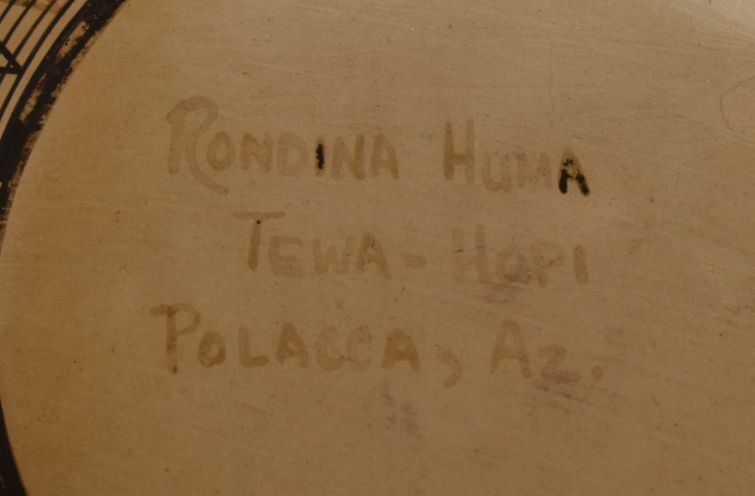 RONDINA HUMA
TEWA-HOPI
POLACCA, AZ.